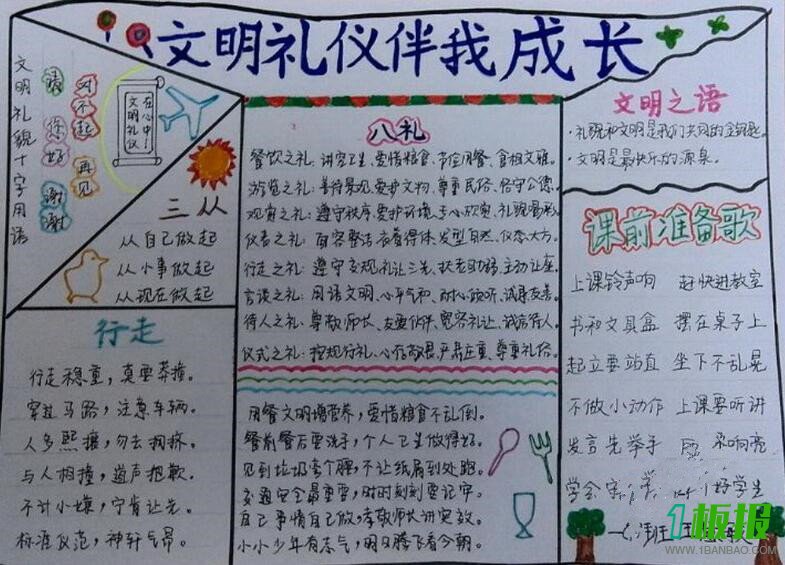 文明礼仪伴我成长
文明礼貌十字用语
请 对不起
你好 再见
谢谢
在心中!
文明礼仪
三从
从自己做起
从小事做起
从现在做起
行走
行走稳重,莫要莽撞。
穿过马路,注意车辆。
人多熙攘,勿去拥挤。
与人相撞,道声抱歉。
不计小嫌,宁肯让先。
标准仪范,神轩气昂。
八礼
餐饮之礼:讲究卫生、爱惜粮食、节俭用餐、食相文雅。
游览之礼:善待景观、爱护文物、尊重民俗、恪守公德。
观赏之礼:遵守秩序、爱护环境、专心欣赏、礼貌喝彩。
仪表之礼:面容整洁、衣着得体、发型自然、仪态大方。
行走之礼:遵守交规、礼让三先、扶老助弱、主动让座。
言谈之礼:用语文明、心平气和、耐心倾听、诚恳友善。
待人之礼:尊敬师长、友爱伙伴、宽容礼让、诚信待人。
仪式之礼:按规行礼、心存敬畏、严肃庄重、尊重礼俗。
用餐文明增营养,爱惜粮食不乱倒。
餐前餐后要洗手,个人卫生做得好。
见到垃圾弯个腰,不让纸屑到处跑。
交通安全最重要,时时刻刻要记牢。
自己事情自己做,孝敬师长讲实效。
小小少年有志气,明日腾飞看今朝。
文明之语
·礼貌和文明是我们共同的金钥匙。
·文明是最快乐的源泉。
课前准备歌
上课铃声响 赶快进教室
书和文具盒 摆在桌子上
起立要站直 坐下不乱晃
不做小动作 上课要听讲
发言先举手 响亮
学会 好学生
班
1板报
WWW.1BANBAO.COM